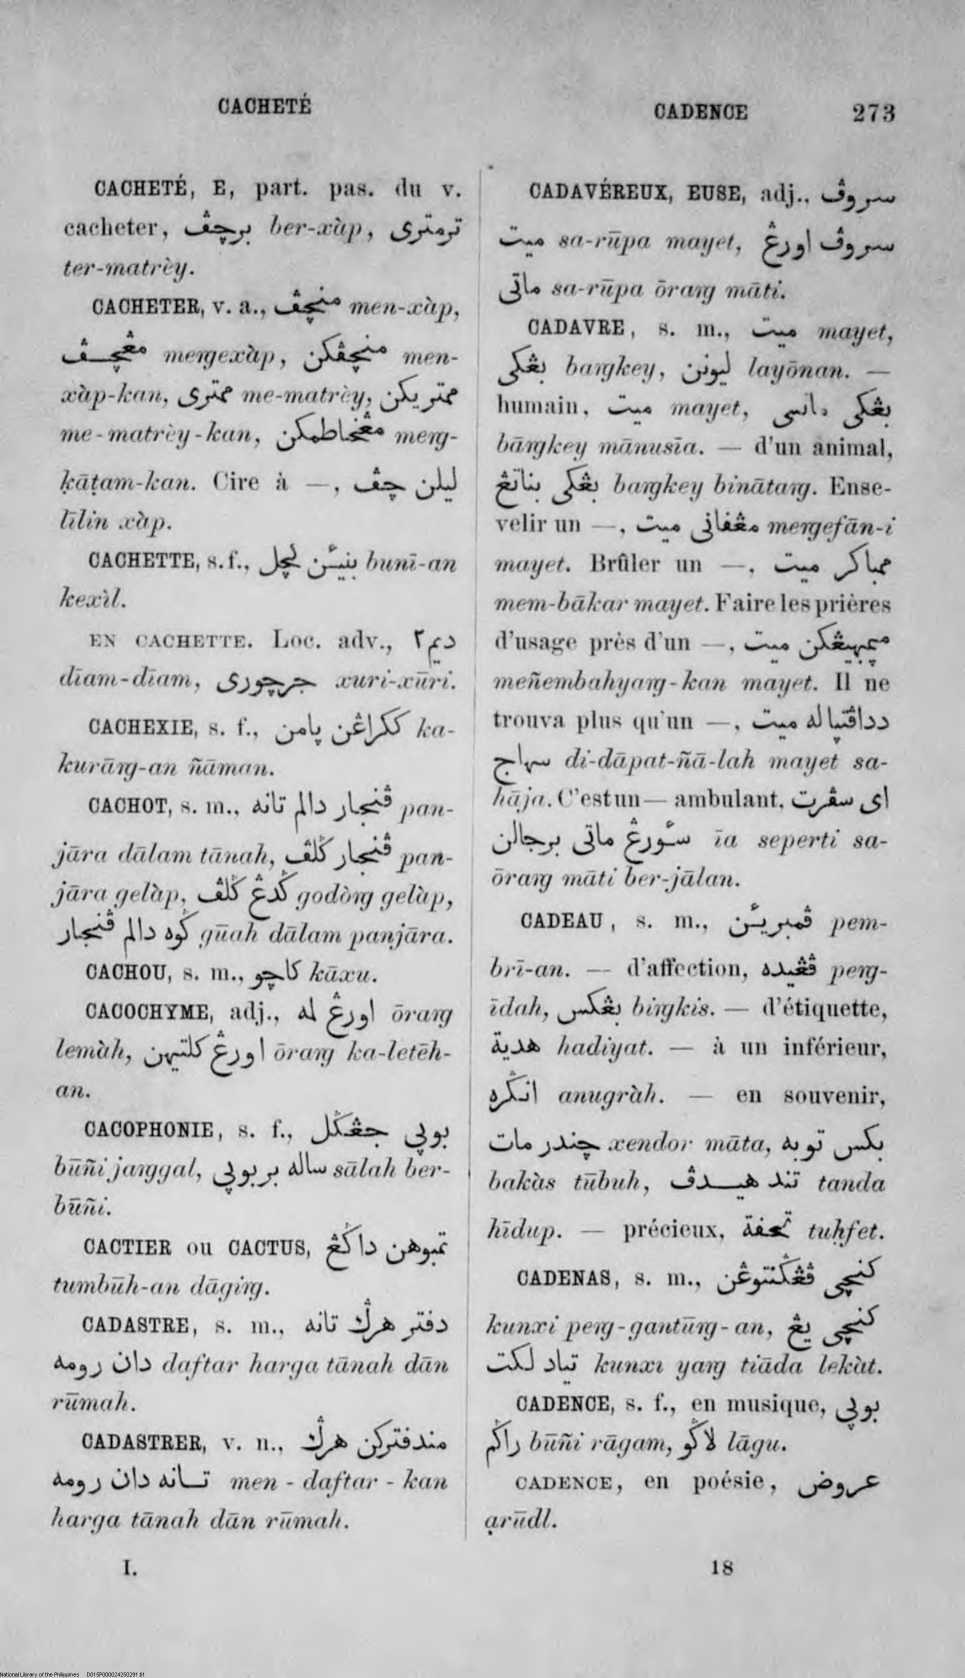 CACHETÉ
CADENCE 273
CACHETÉ, E, part. pas. du v.
cacheter, برچڤ ber-xàp, ترمتري
ter-matrèy.
CACHETER, v. a., منچڤ men-xàp,
مڠچڤ meṅgexàp, منچڤكن men-
xàp-kan, ممتري me-matrèy, ممتريكن
me-matrèy-kan, مڠخاطمكن meṅg-
ḳāṭam-kan. Cire à —, ليلن چڤ
līlin xàp.
CACHETTE, s. f., بنيئن كچل bunī-an
kexìl.
EN CACHETTE. Loc. adv., ديم٢
dīam-dīam, چرچوري xuri-xūri.
CACHEXIE, s. f., ككراڠن ڽامن ka-
kurāṅg-an ñāman.
CACHOT, s. m., ڤنجار دالم تانه pan-
jāra dālam tānah, ڤنجار ݢلڤ pan-
jāra gelàp, ݢدڠ ݢلڤ godòṅg gelàp,
ݢوه دالم ڤنجار gūah dālam panjāra.
CACHOU, s. m., كاچو kāxu.
CACOCHYME, adj., اورڠ لمه ōraṅg
lemàh, اورڠ كلتيهن ōraṅg ka-letēh-
an.
CACOPHONIE, s. f., بوڽي جڠݢل
būñi jaṅggal, ساله بربوڽي sālah ber-
būñi.
CACTIER ou CACTUS, تمبوهن داݢڠ
tumbūh-an dāgiṅg.
CADASTRE, s. m., دفتر هرݢ تانه
دان رومه daftar harga tānah dān
rūmah.
CADASTRER, v. n., مندفتركن هرݢ
تانه دان رومه men-daftar-kan
harga tānah dān rūmah.
I.
CADAVÉREUX, EUSE, adj., سروڤ
ميت sa-rūpa mayet, سروڤ اورڠ
ماتي sa-rūpa ōraṅg māti.
CADAVRE, s. m., ميت mayet,
بڠكي baṅgkey, ليونن layōnan. —
humain, ميت mayet, بڠكي مانسي
bāṅgkey mānusīa. — d'un animal,
بڠكي بناتڠ baṅgkey binātaṅg. Ense-
velir un —, مڠفاني ميت meṅgefān-i
mayet. Brûler un —, ممباكر ميت
mem-bākar mayet. Faire les prières
d'usage près d'un —, مڽمبهيڠكن ميت
meñembahyaṅg-kan mayet. Il ne
trouva plus qu'un —, دداڤتڽاله ميت
سهاج di-dāpat-ñā-lah mayet sa-
hāja. C'est un — ambulant, اي سڤرت
سئورڠ ماتي برجالن īa seperti sa-
ōraṅg māti ber-jālan.
CADEAU, s. m., ڤمبريئن pem-
brī-an. — d'affection, ڤڠيده peṅg-
īdah, بڠكس biṅgkis. — d'étiquette,
هدية hadiyat. — à un inférieur,
انݢره anugràh. — en souvenir,
چندر مات xendor māta, بكس توبه
bakàs tūbuh, تند هيدڤ tanda
hīdup. — précieux, تحفة tuḥfet.
CADENAS, s. m., كنچي ڤڠݢنتوڠن
kunxi peṅg-gantūṅg-an, كنچي يڠ
تياد لكت kunxi yaṅg tiāda lekàt.
CADENCE, s. f., en musique, بوڽي
راݢم būñi rāgam, لاݢو lāgu.
CADENCE, en poésie, عروض
ạrūdl.
18
National Library of the Philippines